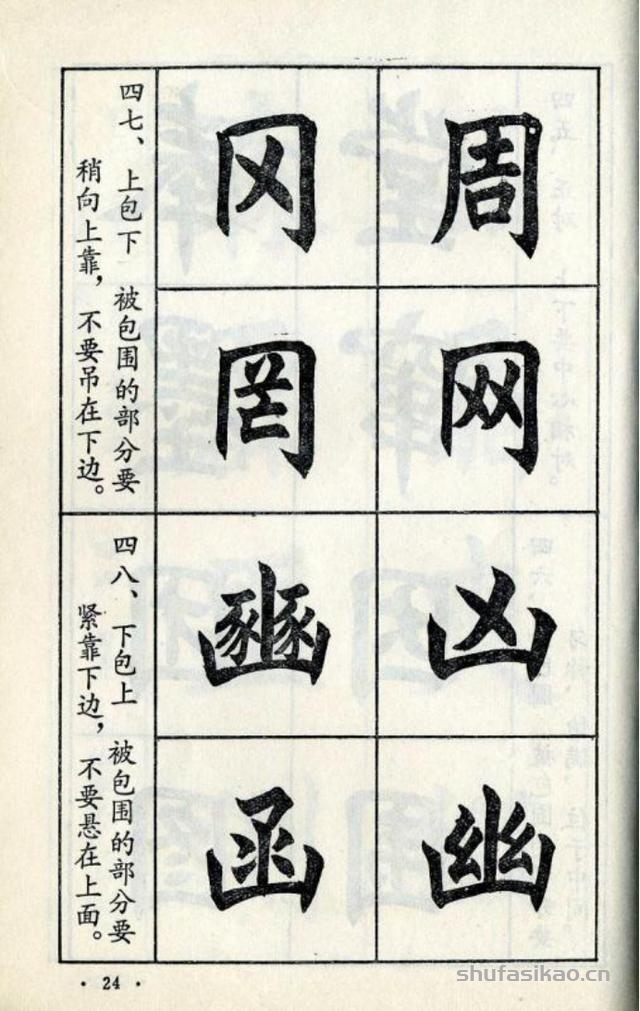 四七、上包下 被包围的部分要
稍向上靠，不要吊在下边。
周
冈
网
罔
四八、下包上 被包围的部分要
紧靠下边，不要悬在上面。
凶
豳
幽
函
· 24 ·
shufasikao.cn